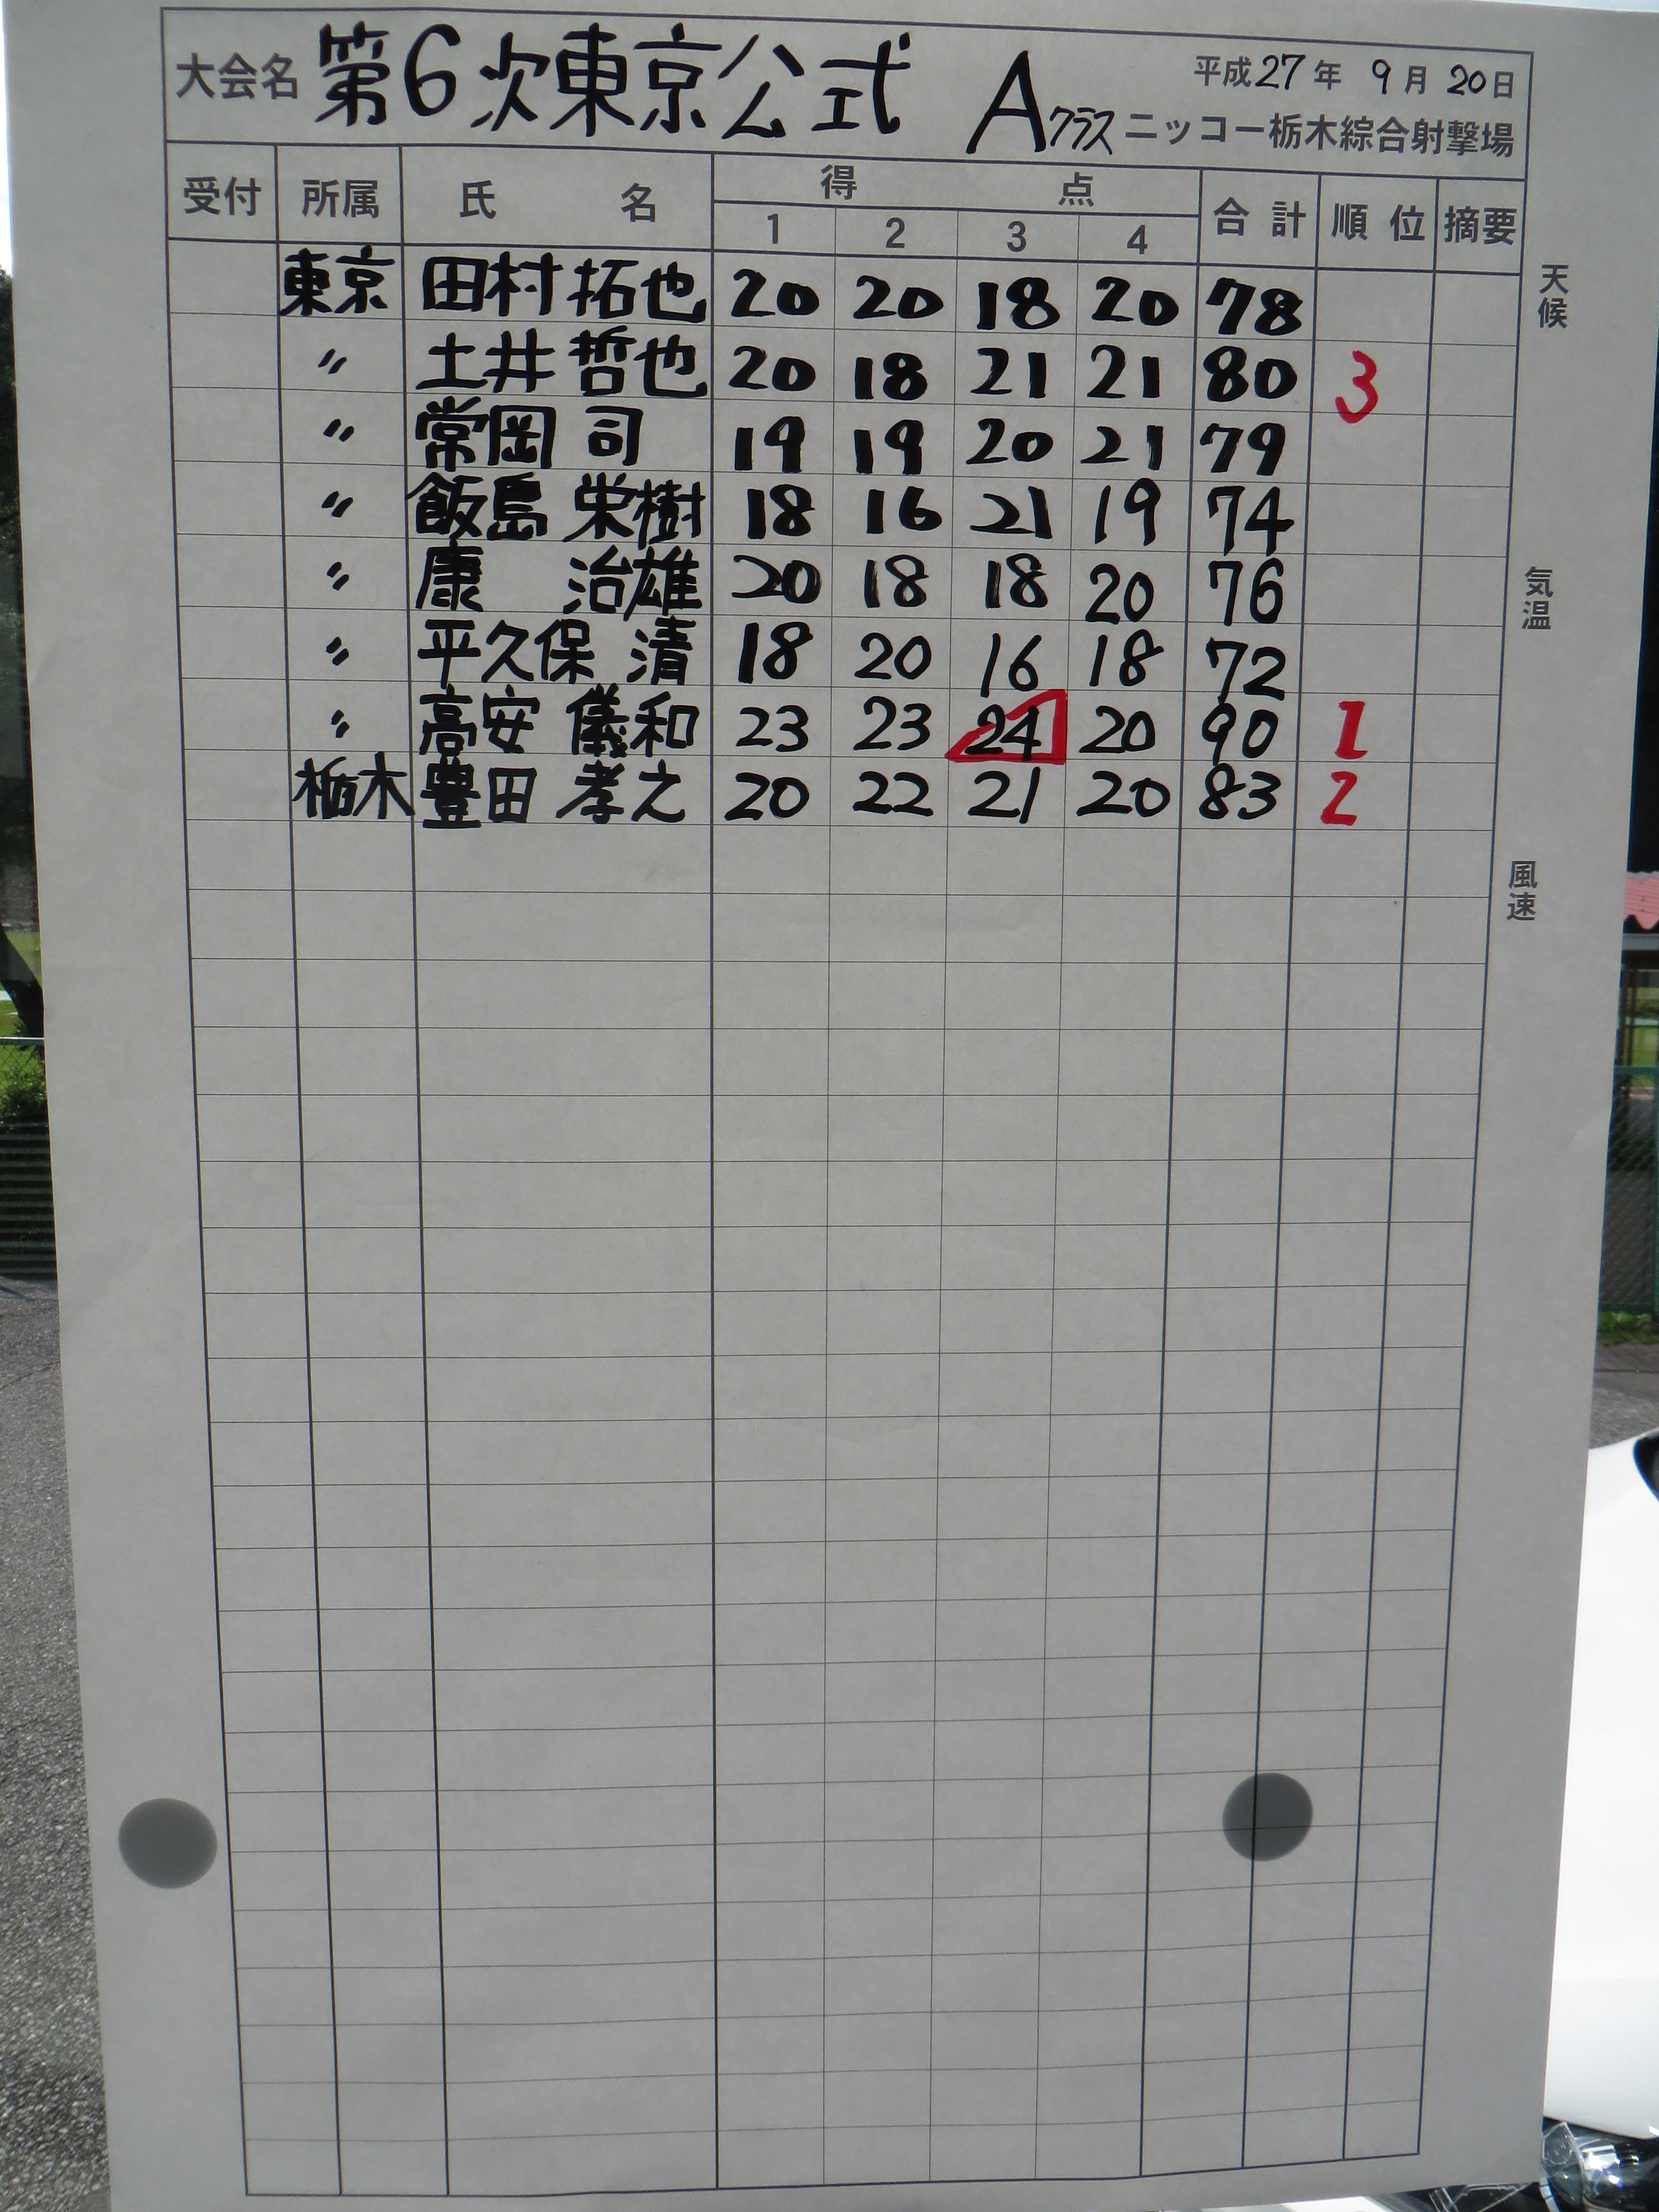 大会名 第6次東京公式 Aクラス 平成27年 9月 20日
ニッコー栃木綜合射撃場
受付 所属 氏 名 得 点 合計 順位 摘要
1 2 3 4
東京 田村 拓也 20 20 18 20 78
〃 土井 哲也 20 18 21 21 80 3
〃 常岡 司 19 19 20 21 79
〃 飯島 栄樹 18 16 21 19 74
〃 康 治雄 20 18 18 20 76
〃 平久保 清 18 20 16 18 72
〃 高安 儀和 23 23 24 20 90 1
栃木 豊田 孝之 20 22 21 20 83 2
天候
気温
風速